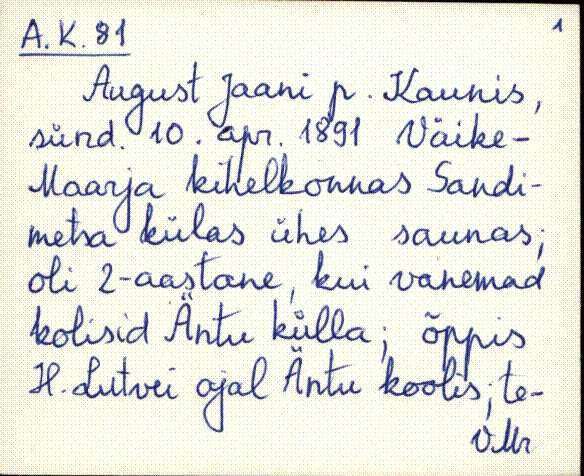 A.K. 81
1
August Jaani p. Kaunis,
sünd. 10. apr. 1891 Väike-
Maarja kihelkonnas Sandi-
metsa külas ühes saunas;
oli 2-aastane, kui vanemad
kolisid Äntu külla; õppis
H. Lutvei ajal Äntu koolis; te-
V.Mr